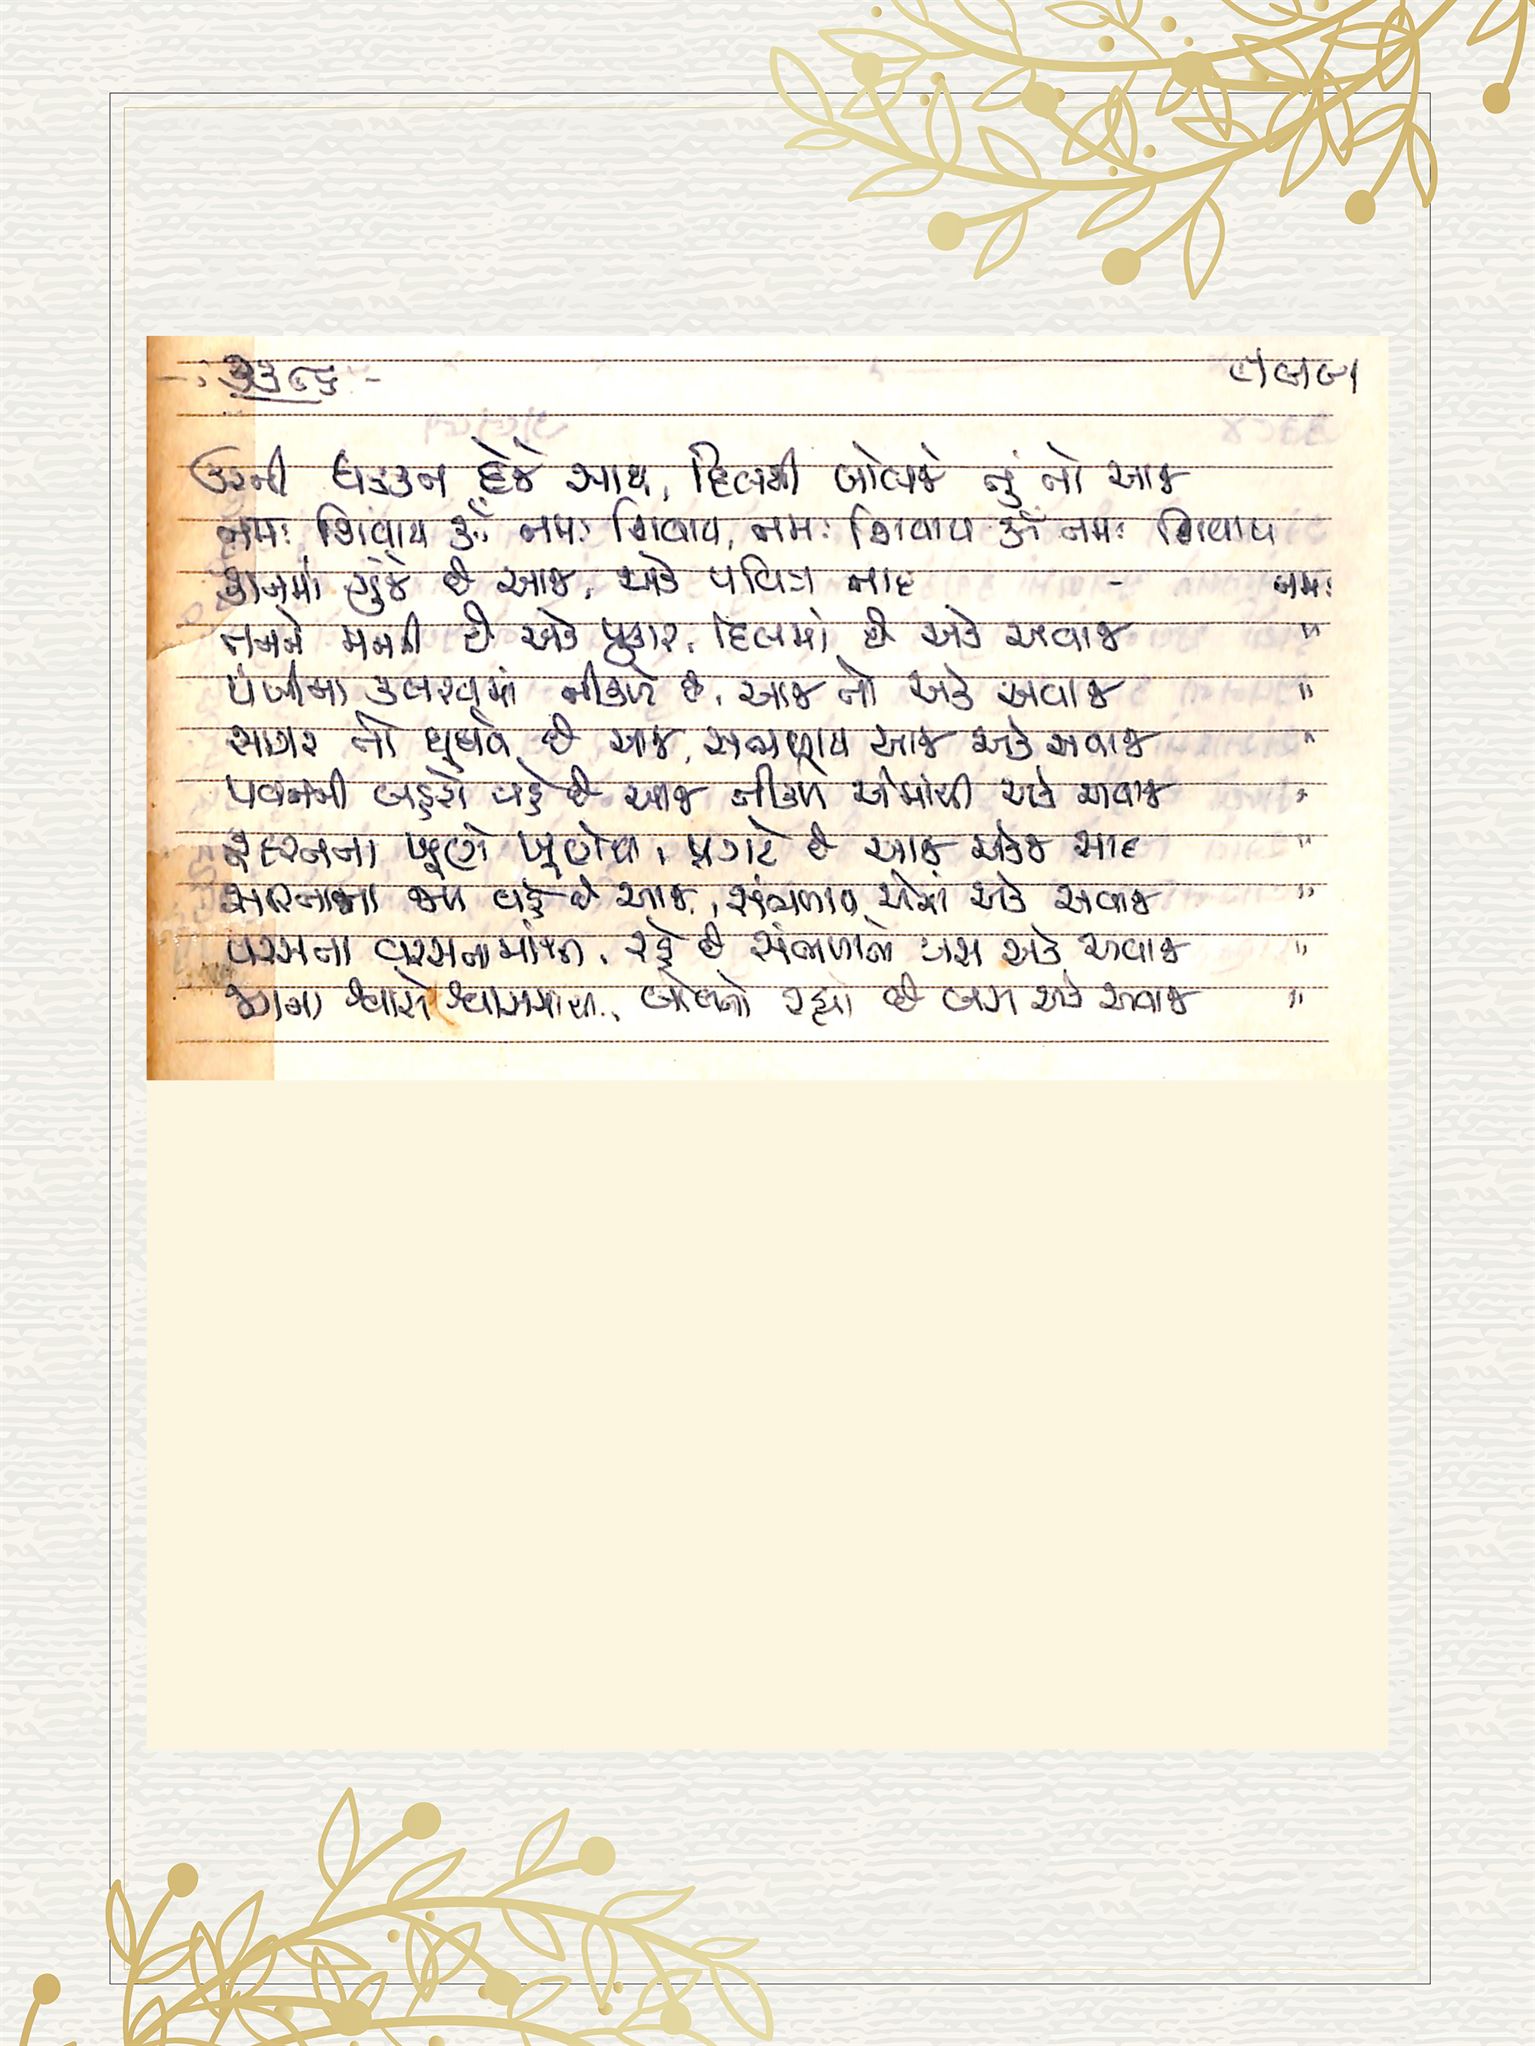 ઉરની ધડકન દેજે સાથ, દિલથી બોલજે તું તો આજ
નમઃ શિવાય ૐ નમઃ શિવાય, નમઃ શિવાય ૐ નમઃ શિવાય
કાનમાં ગુંજે છે આજ, એક પવિત્ર નાદ - નમઃ
મનની છે એક પુકાર, દિલમાં છે એક અવાજ "
પંખીના કલરવમાં નીકળે છે, આજ તો એક અવાજ "
સાગર તો ઘુઘવે છે આજ, સંભળાય આજ એક અવાજ "
પવનની લહેરો વહે છે આજ નીકળે એમાંથી એક અવાજ "
કુદરતના ખૂણે ખૂણેથી, પ્રગટે છે આજ એકજ સાદ "
ઝરણાના જળ વહે છે આજ, સંભળાય એમાં એક અવાજ "
રહે છે સંભળાતો બસ એક અવાજ "
શ્વાસે શ્વાસમાંથી, બોલતો રહ્યો છે બસ એક અવાજ "